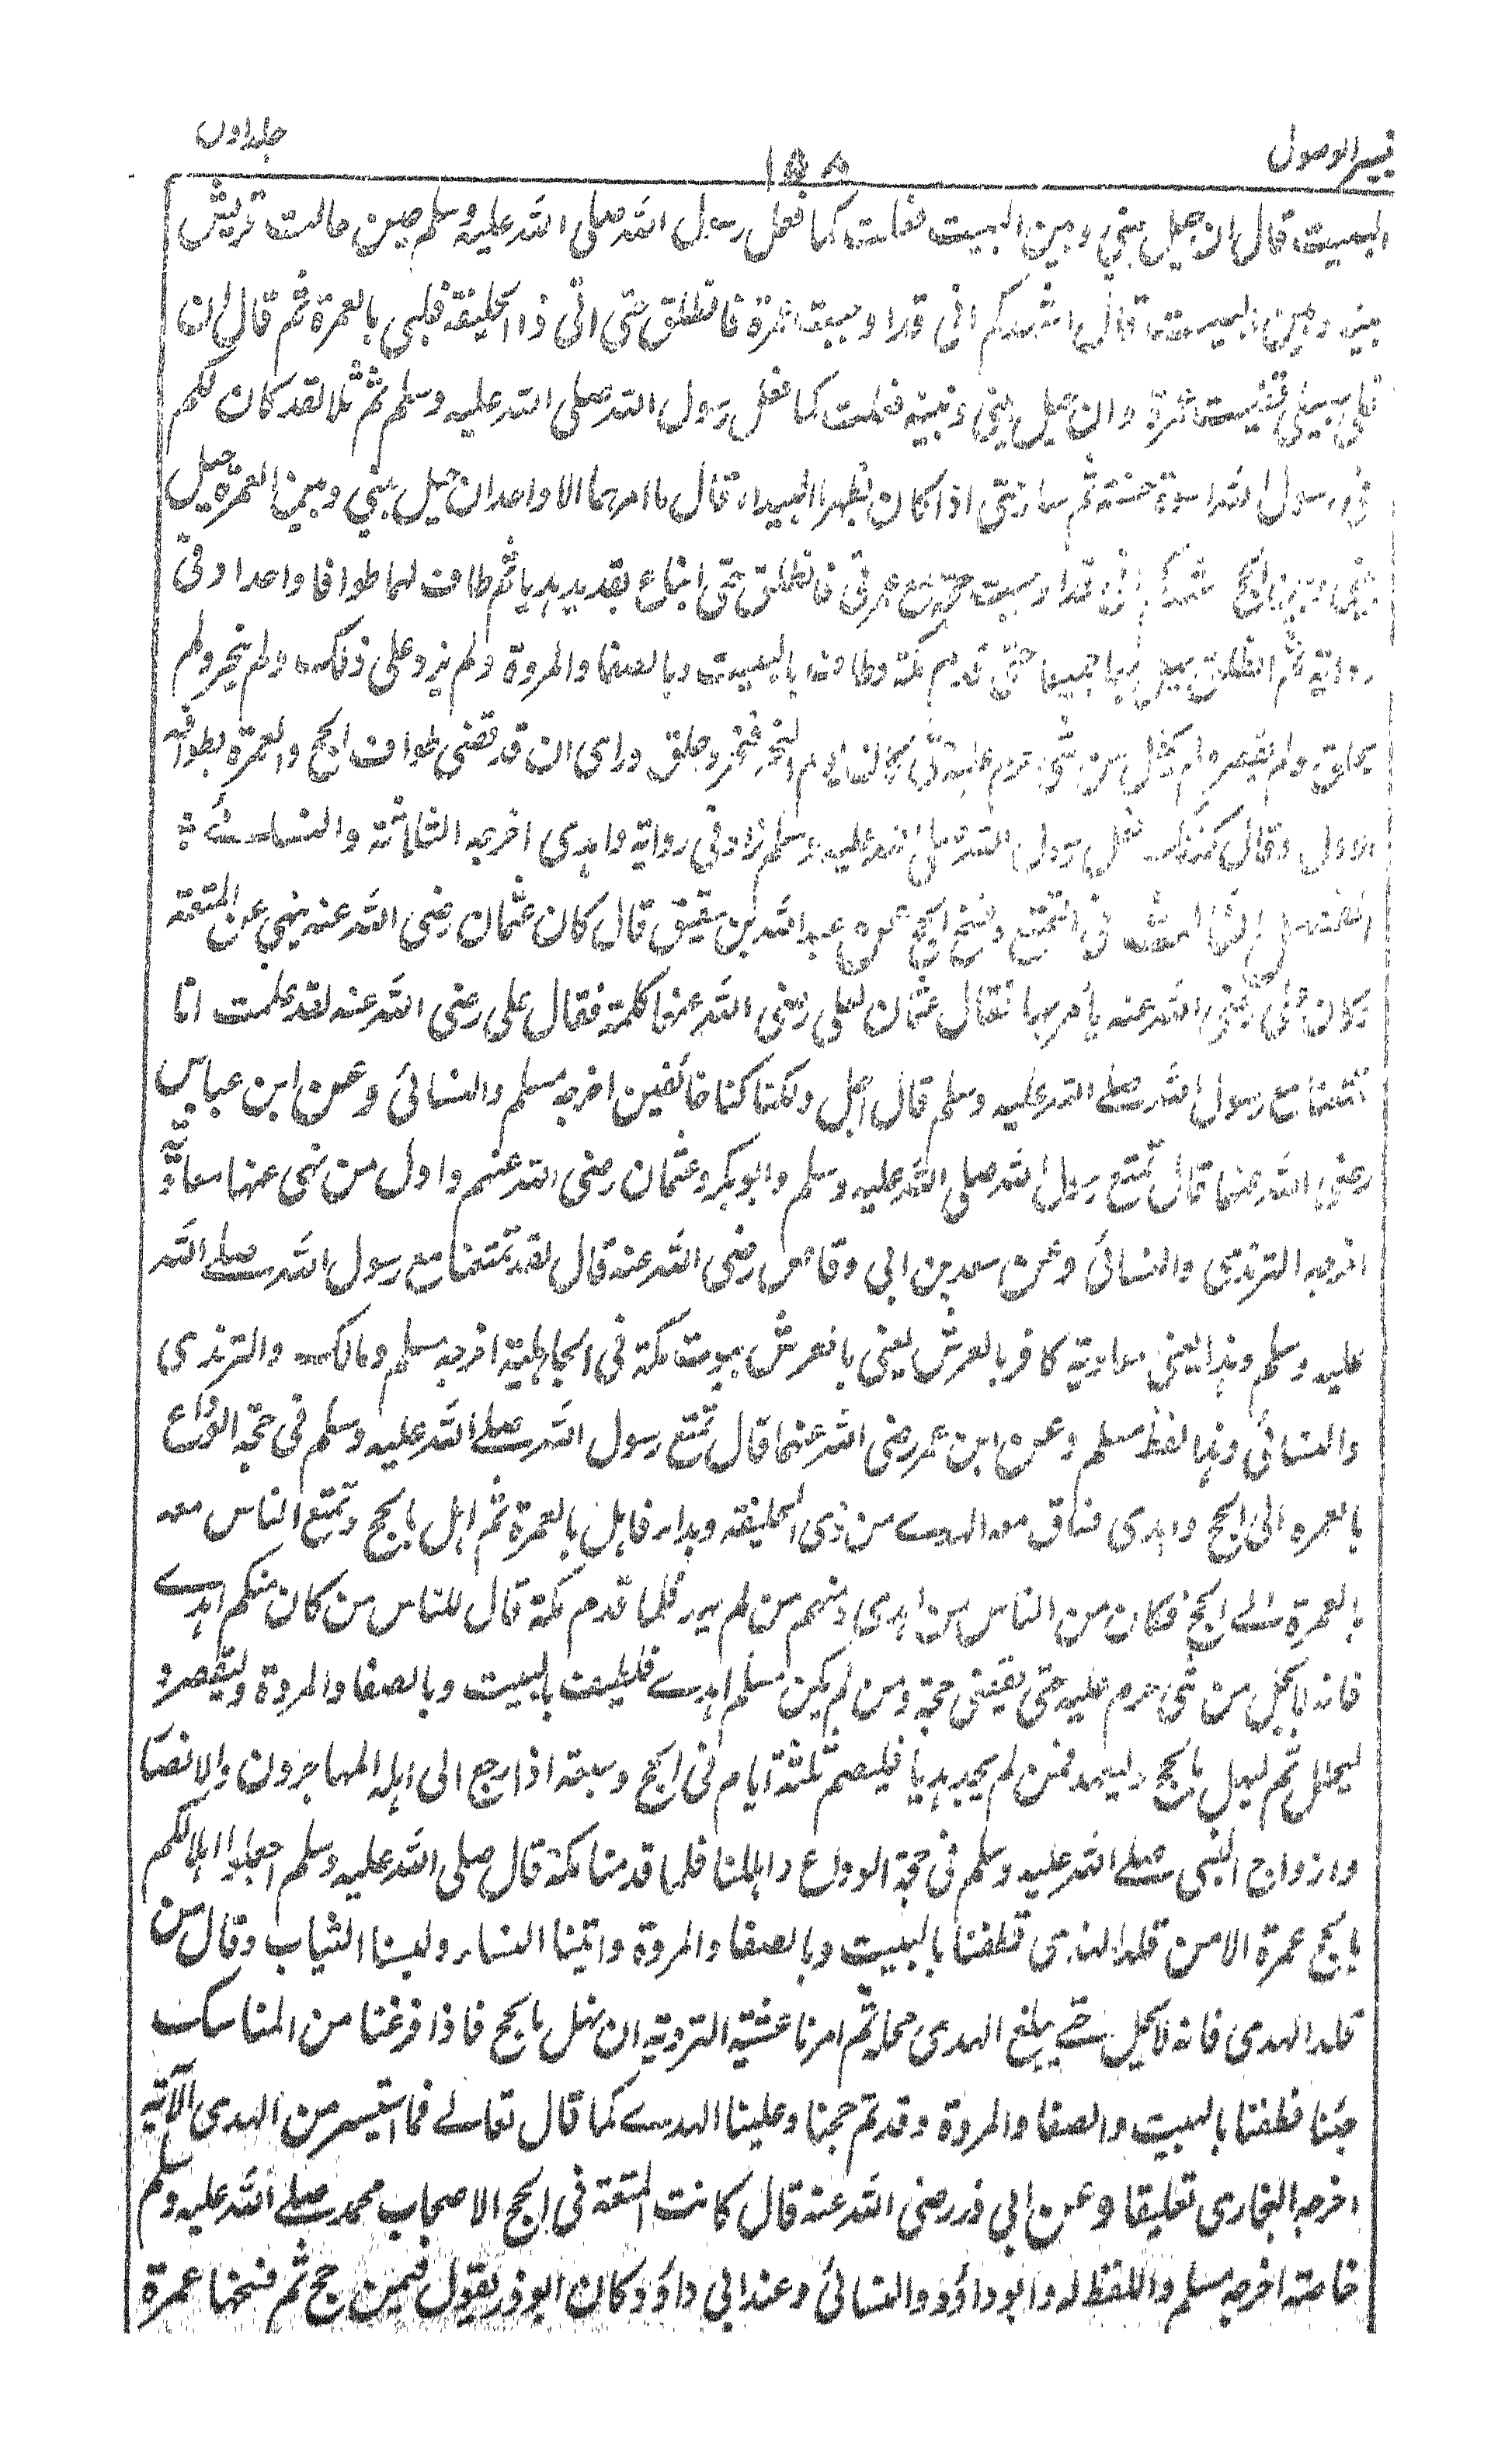 تيسير الوصول ١٥٨ جلد اول
البيت قال ان حيل بيني وبين البيت فعلت كما فعل رسول الله صلى الله عليه وسلم حين حالت قريش
بينه وبين البيت فقال اشهدكم انى قد اوجبت عمرة فانطلق حتى اتى ذا الحليفة فلبى بالعمرة ثم قال ان
خلى سبيلى قضيت عمرة وان حيل بينى وبينه فعلت كما فعل رسول الله صلى الله عليه وسلم ثم تلا لقد كان لكم
فى رسول الله اسوة حسنة ثم سار حتى اذا كان بظهر البيداء قال ما امرهما الا واحد ان حيل بيني وبين العمرة حيل
بينى وبين الحج اشهدكم انى قد اوجبت حجة مع عمرتى فانطلق حتى ابتاع بقديد هديا ثم طاف لهما طوافا واحدا وفى
رواية ثم انطلق يهل بهما جميعا حتى قدم مكة وطاف بالبيت وبالصفا والمروة ولم يزد على ذلك ولم ينحر ولم
يحلق ولم يقصر ولم يحلل من شئ حرم عليه حتى كان يوم النحر فنحر وحلق وراى ان قد قضى طواف الحج والعمرة بطوافه
الاول وقال كذلك فعل رسول الله صلى الله عليه وسلم زاد فى رواية واهدى اخرجه الثلاثة والنسائے ؞
الفصل الثالث فى التمتع وفسخ الحج عن عبد الله بن شقيق قال كان عثمان رضى الله عنه ينهي عن المتعة
وكان على رضى الله عنه يأمر بها فقال عثمان لعلى رضى الله عنهما كلمة فقال على رضى الله عنه لقد علمت انا
تمتعنا مع رسول الله صلے الله عليه وسلم قال اجل ولكنا كنا خائفين اخرجه مسلم والنسائى وعن ابن عباس
رضى الله عنهما قال تمتع رسول الله صلى الله عليه وسلم وابو بكر وعثمان رضى الله عنهم واول من نهى عنها معاوية
اخرجه الترمذى والنسائى وعن سعد بن ابي وقاص رضى الله عنه قال لقد تمتعنا مع رسول الله صلے الله
عليه وسلم وهذا يعنى معاوية كافر بالعرش يعنى بالعرش بيوت مكة فى الجاهلية اخرجه مسلم ومالك والترمذى
والنسائى وهذا لفظ مسلم وعن ابن عمر رضى الله عنهما قال تمتع رسول الله صلے الله عليه وسلم فى حجة الوداع
بالعمرة الى الحج واهدى فساق معه الهدے من ذى الحليفة وبدأ فاهل بالعمرة ثم اهل بالحج وتمتع الناس معه
بالعمرة الے الحج فكان من الناس من اهدى ومنهم من لم يهد فلما قدم مكة قال للناس من كان منكم اهدے
فانه لا يحل من شئ حرم عليه حتى يقضى حجة ومن لم يكن منكم اهدے فليطف بالبيت وبالصفا والمروة وليقصر و
ليحلل ثم ليهل بالحج وليهد فمن لم يجد هديا فليصم ثلثة ايام فى الحج وسبعة اذا رجع الى اهله المهاجرون والانصار
وازواج النبى صلے الله عليه وسلم فى حجة الوداع واهللنا فلما قدمنا مكة قال صلى الله عليه وسلم اجعلوا اهلالكم
بالحج عمرة الا من قلد الهدى فطفنا بالبيت وبالصفا والمروة واتينا النساء ولبسنا الثياب وقال من
قلد الهدى فانه لا يحل حتے يبلغ الهدى محله ثم امرنا عشية التروية ان نهل بالحج فاذا فرغنا من المناسك
جئنا فطفنا بالبيت والصفا والمروة وقد تم حجنا وعلينا الهدے كما قال تعالے فما استيسر من الهدى الآية
اخرجه البخارى تعليقا وعن ابي ذر رضى الله عنه قال كانت المتعة فى الحج الاصحاب محمد صلے الله عليه وسلم
خاصة اخرجه مسلم واللفظ له وابو داؤد والنسائى وعند ابي داؤد وكان ابو ذر يقول فيمن حج ثم فسخها عمرة